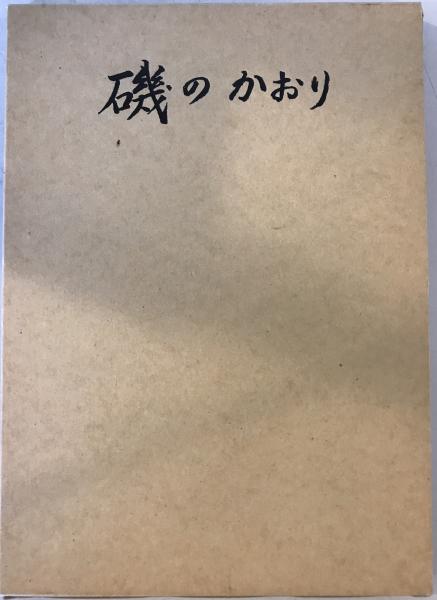 磯のかおり